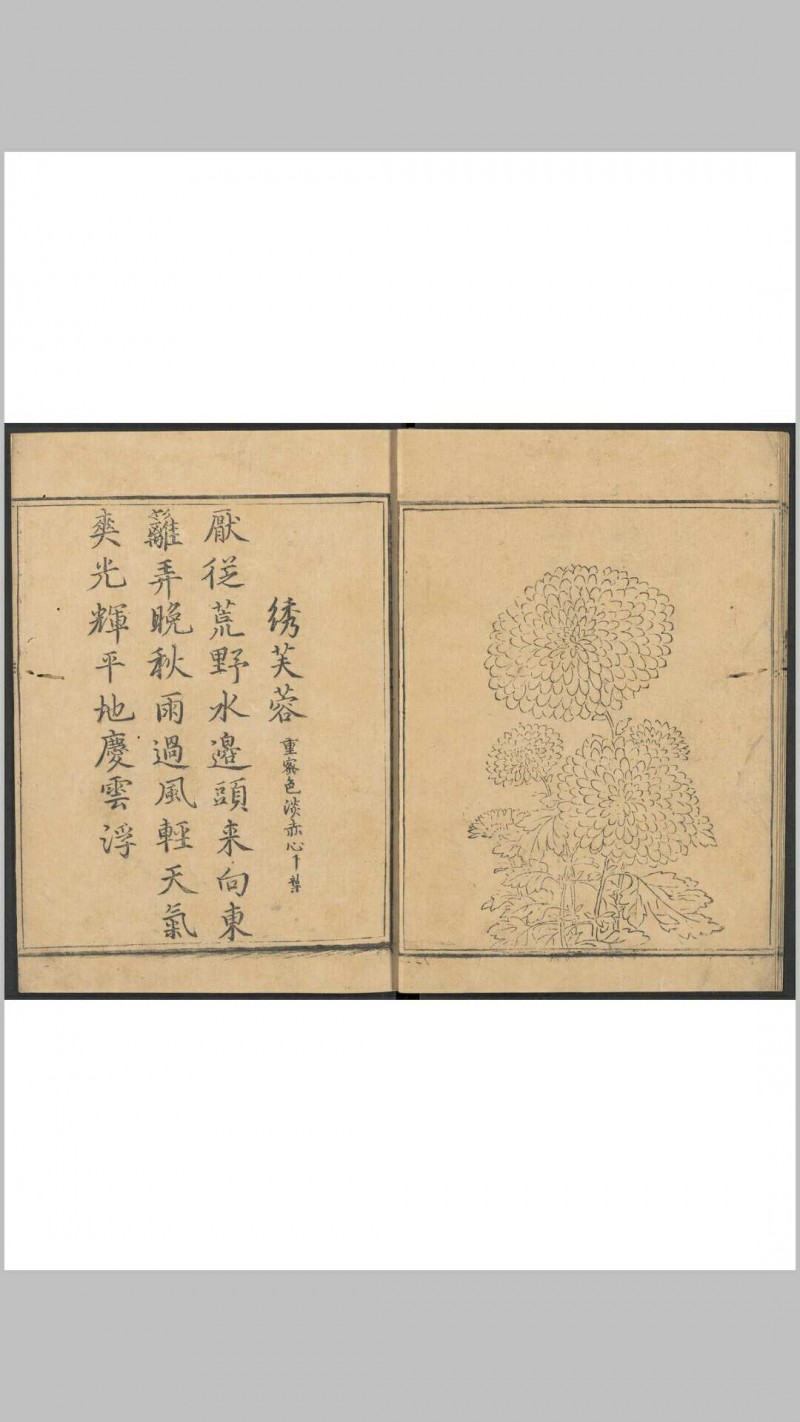 绣芙蓉 重寮色淡赤心千葉
厭從荒野水邉頭来向東
籬弄晚秋雨過風輕天氣
爽光輝平地慶雲浮